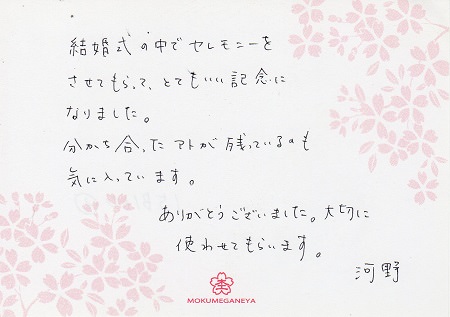 結婚式の中でセレモニーを
させてもらって、とてもいい記念に
なりました。
分かち合ったアトが残っているのも
気に入っています。
ありがとうございました。大切に
使わせてもらいます。
河野
MOKUMEGANEYA